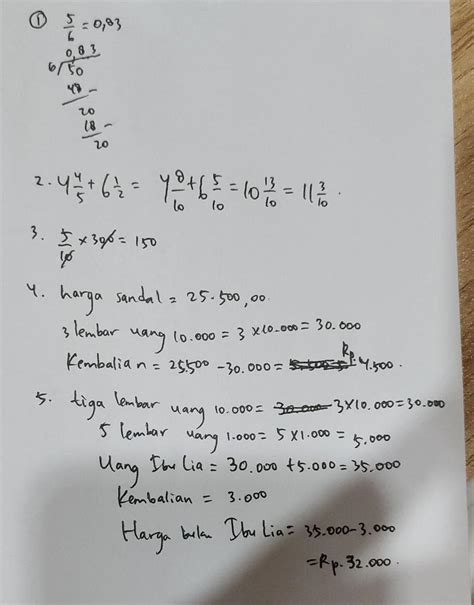 ① 5/6 = 0,83
0,83
6/50
48 -
20
18 -
20
2. 4 4/5 + 6 1/2 = 4 8/10 + 6 5/10 = 10 13/10 = 11 3/10 .
3. 5/10 x 300 = 150
4. harga sandal = 25.500,00.
3 lembar uang 10.000 = 3 x 10.000 = 30.000
Kembalian = 25.500 - 30.000 = Rp. 4.500.
5. tiga lembar uang 10.000 = 30.000 3x10.000 = 30.000
5 lembar uang 1.000 = 5 x 1.000 = 5.000
Uang Ibu Lia = 30.000 + 5.000 = 35.000
Kembalian = 3.000
Harga buku Ibu Lia = 35.000 - 3.000
= Rp. 32.000.